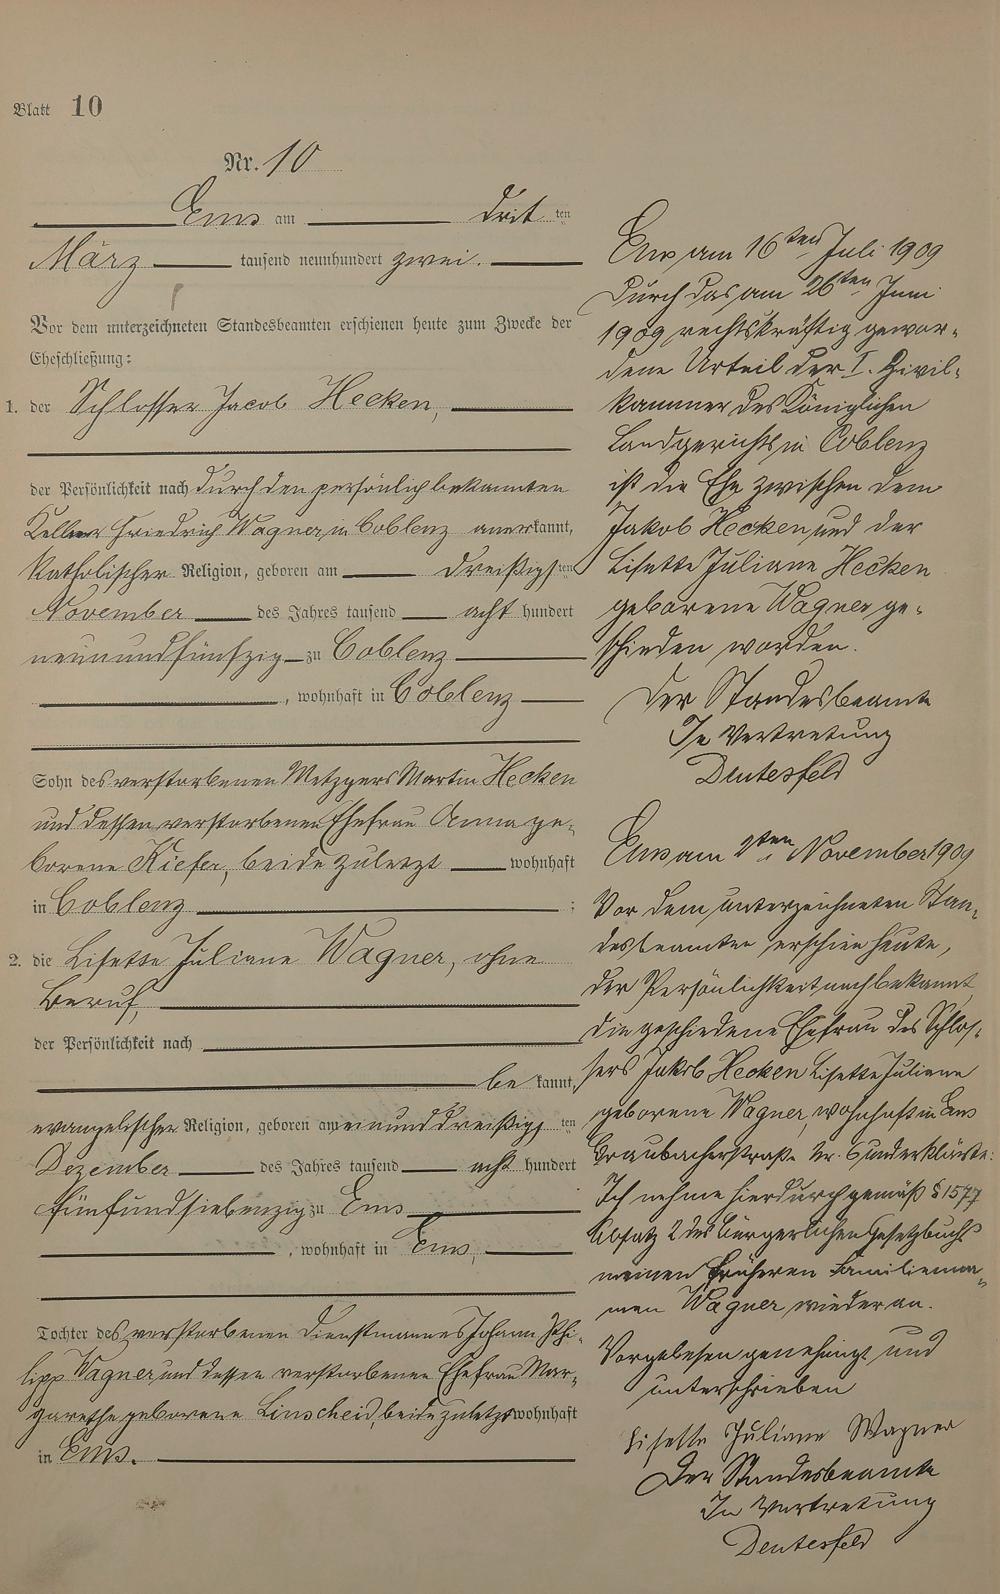 Blatt 10
Nr. 10
Ems am Drit ten
März tausend neunhundert zwei.
Vor dem unterzeichneten Standesbeamten erschienen heute zum Zwecke der
Eheschließung:
1. der Schlosser Jacob Hecken,
der Persönlichkeit nach durch den persönlich bekannten
Kellner Friedrich Wagner, in Coblenz anerkannt,
katholischer Religion, geboren am dreißigsten
November des Jahres tausend acht hundert
neunundfünfzig zu Coblenz
, wohnhaft in Coblenz
Sohn des verstorbenen Metzgers Martin Hecken
und dessen verstorbenen Ehefrau Anna ge-
borene Kiefer, beide zuletzt wohnhaft
in Coblenz ;
2. die Lisette Juliane Wagner, ohne
Beruf,
der Persönlichkeit nach
be kannt,
evangelischer Religion, geboren am einunddreißigs ten
Dezember des Jahres tausend acht hundert
fünfundsiebenzig zu Ems
, wohnhaft in Ems,
Tochter des verstorbenen Dienstmannes Johann Phi-
lipp Wagner und dessen verstorbenen Ehefrau Mar-
garethe geborene Linscheid, beide zuletzt wohnhaft
in Ems.
Ems am 16ten Juli 1909
Durch das am 26ten Juni
1909 rechtskräftig gewor-
dene Urteil der I. Zivil-
kammer des Königlichen
Landgerichts in Coblenz
ist die Ehe zwischen dem
Jakob Hecken und der
Lisette Juliane Hecken
geborene Wagner ge-
schieden worden.
Der Standesbeamte
In Vertretung
Deutesfeld
Ems am 2ten November 1909
Vor dem unterzeichneten Stan-
desbeamten erschien heute,
der Persönlichkeit nach bekannt,
die geschiedene Ehefrau des Schlos-
sers Jakob Hecken Lisette Juliane
geborene Wagner, wohnhaft in Ems
Braubacherstraße Nr. 6 und erklärte:
Ich nehme hierdurch gemäß § 1577
Absatz 2 des Bürgerlichen Gesetzbuchs
meinen früheren Familienna-
men Wagner wieder an.
Vorgelesen genehmigt und
unterschrieben
Lisette Juliane Wagner
Der Standesbeamte
In Vertretung
Deutesfeld